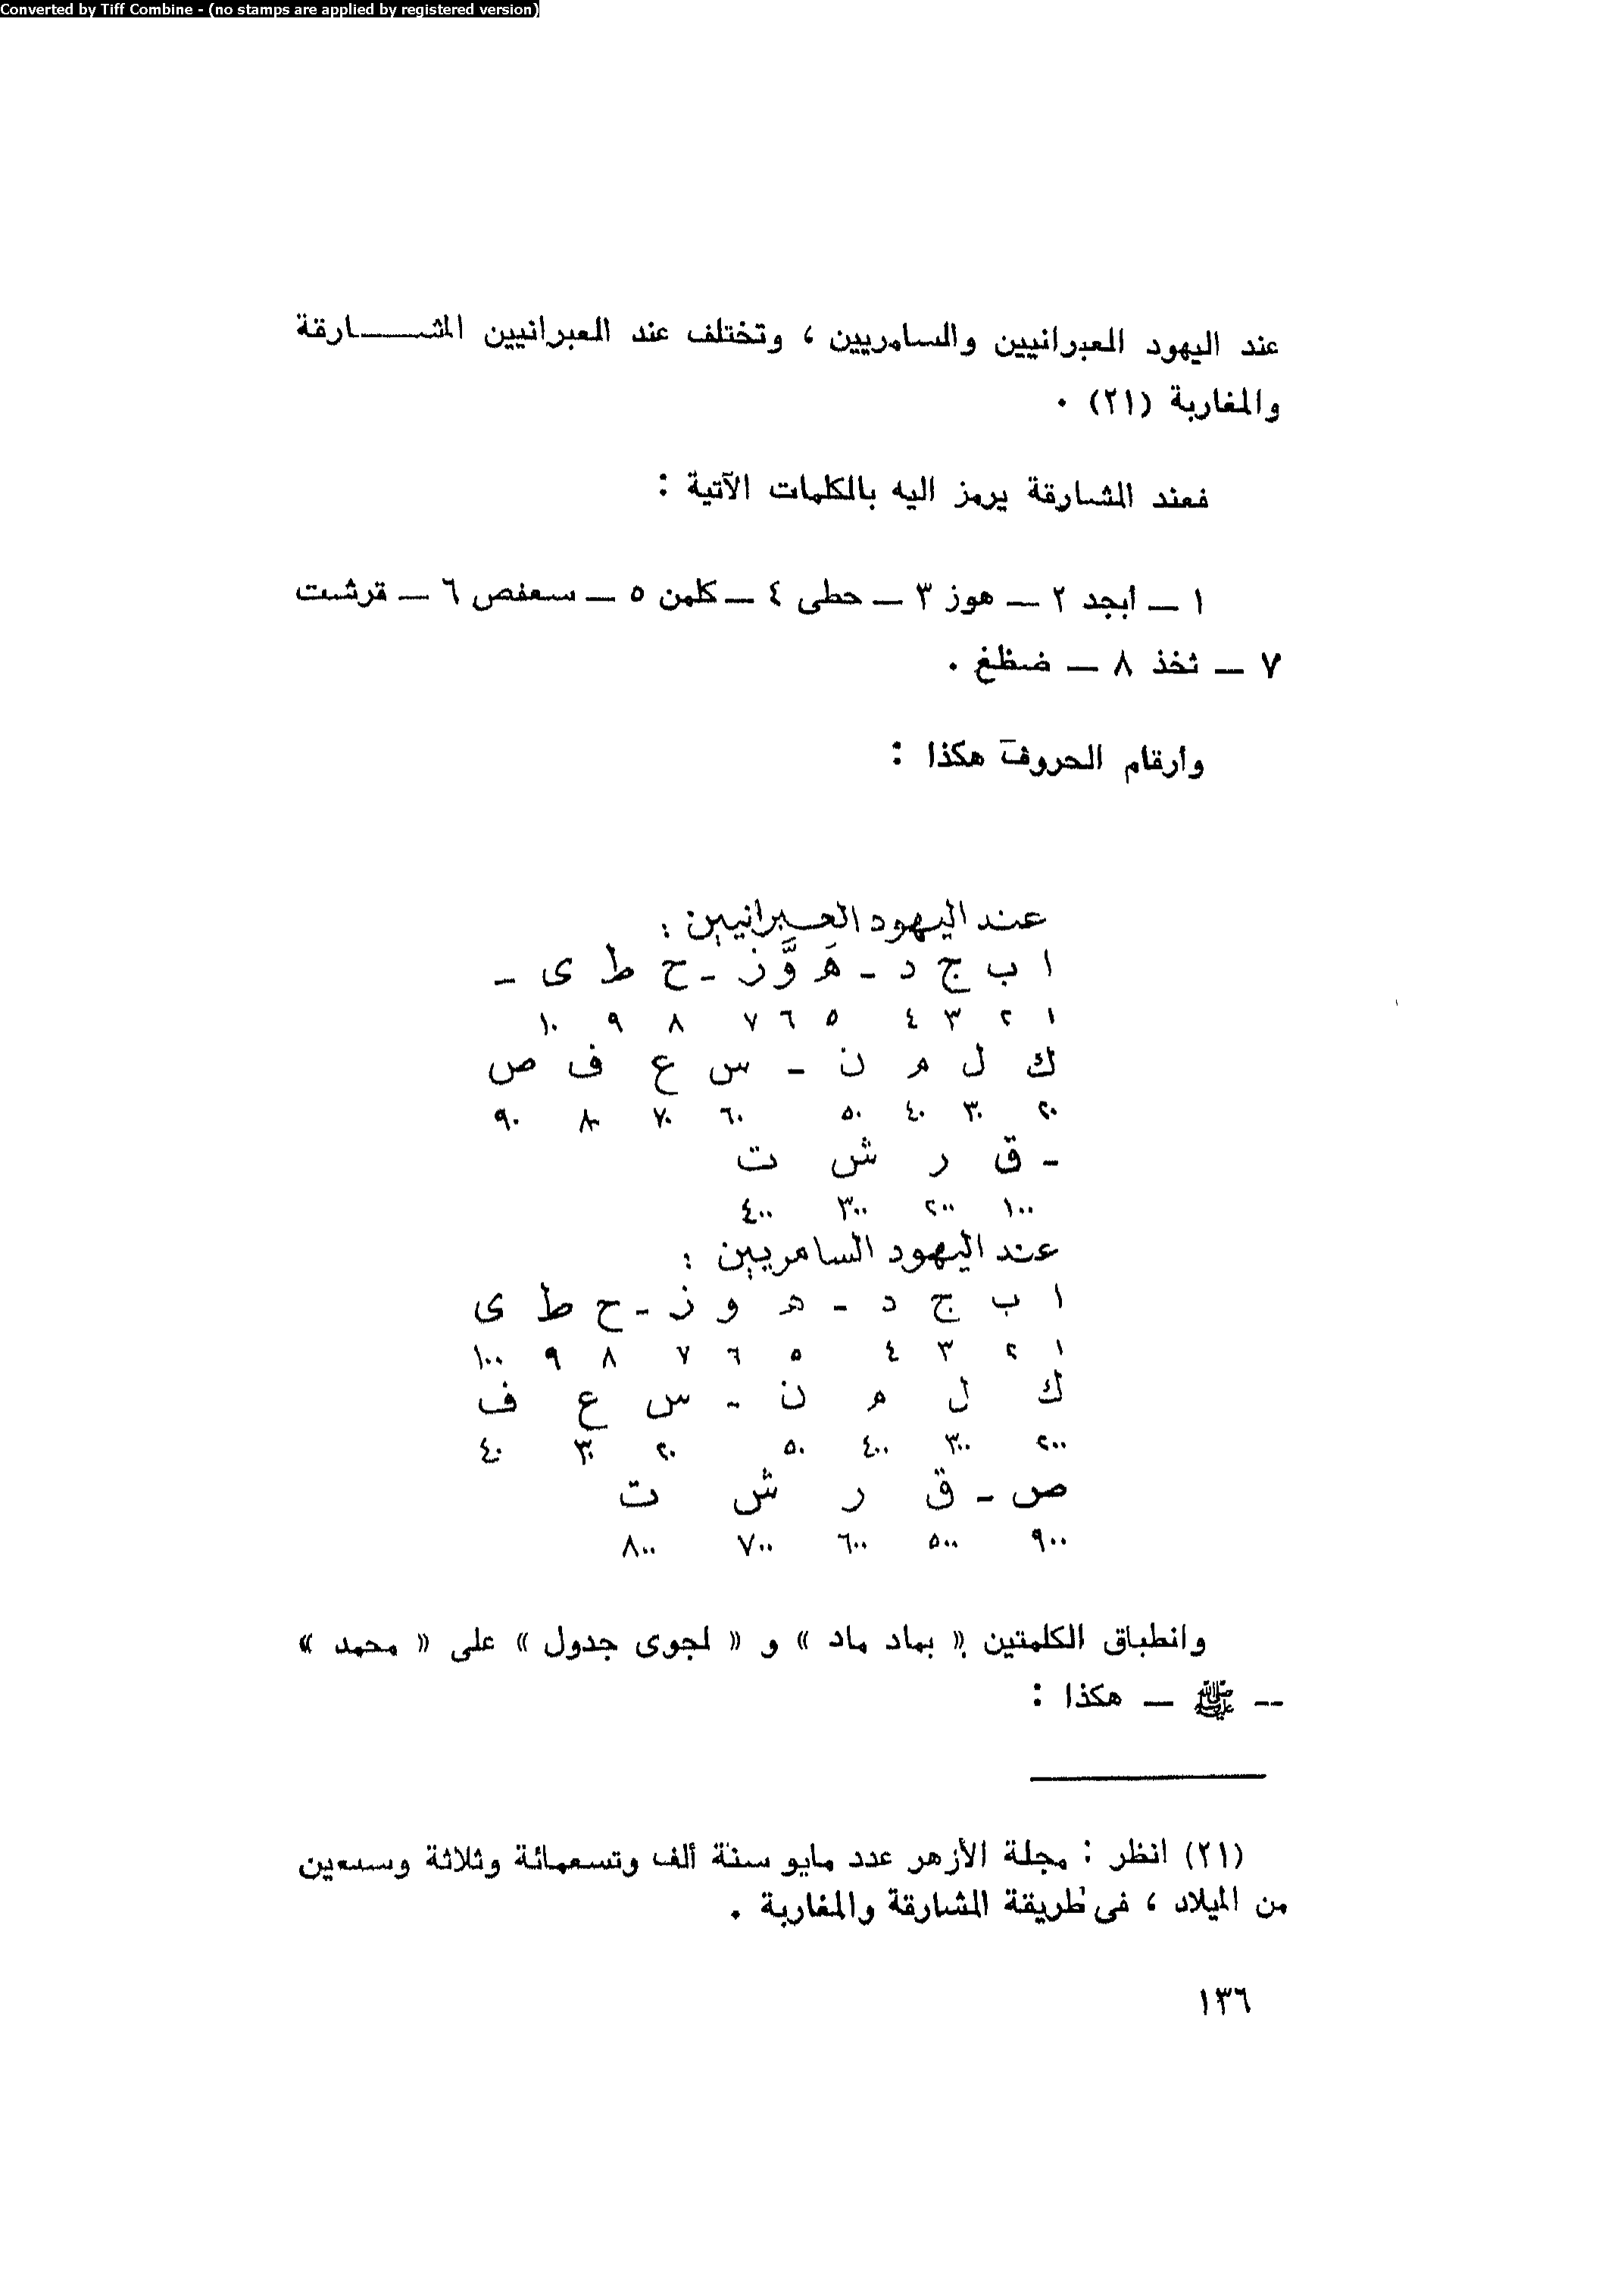 Converted by Tiff Combine - (no stamps are applied by registered version)
عند اليهود العبرانيين والسامريين ، وتختلف عند العبرانيين المشـــارقة
والمغاربة (٢١) .
فعند المشارقة يرمز اليه بالكلمات الآتية :
١ — أبجد ٢ — هوز ٣ — حطى ٤ — كلمن ٥ — سعفص ٦ — قرشت
٧ — ثخذ ٨ — ضظغ .
وأرقام الحروف هكذا :
عند اليهود العبرانيين :
ا ب ج د - هَ وَّ ز - ح ط ى -
١ ٢ ٣ ٤ ٥ ٦ ٧ ٨ ٩ ١٠
ك ل م ن - س ع ف ص
٢٠ ٣٠ ٤٠ ٥٠ ٦٠ ٧٠ ٨٠ ٩٠
- ق ر ش ت
١٠٠ ٢٠٠ ٣٠٠ ٤٠٠
عند اليهود السامريين :
ا ب ج د - ه و ز - ح ط ى
١ ٢ ٣ ٤ ٥ ٦ ٧ ٨ ٩ ١٠٠
ك ل م ن - س ع ف
٢٠٠ ٣٠٠ ٤٠٠ ٥٠ ٢٠ ٣٠ ٤٠
ص - ق ر ش ت
٩٠٠ ٥٠٠ ٦٠٠ ٧٠٠ ٨٠٠
وانطباق الكلمتين « بماد ماد » و « لجوى جدول » على « محمد »
— ﷺ — هكذا :
(٢١) انظر : مجلة الأزهر عدد مايو سنة ألف وتسعمائة وثلاثة وسبعين
من الميلاد ، فى طريقة المشارقة والمغاربة .
١٣٦